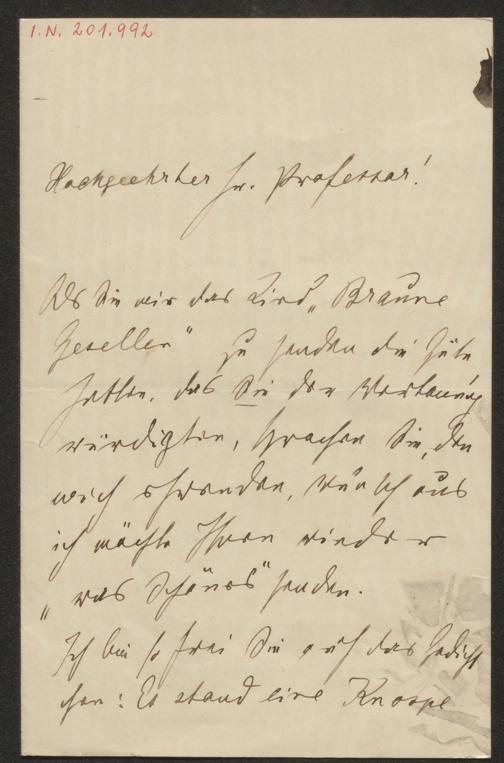 I.N. 201.992
Hochgeehrter Hr. Professor!
Als Sie mir das Lied „Braune
Gesellen“ zu senden die Güte
hatten, das Sie der Vertonung
würdigten, sprachen Sie, den
mich ehrenden, Wunsch aus
ich möchte Ihnen wieder
„was Schönes“ senden.
Ich bin so frei Sie auf das Gedicht
chen: Es stand eine Knospe